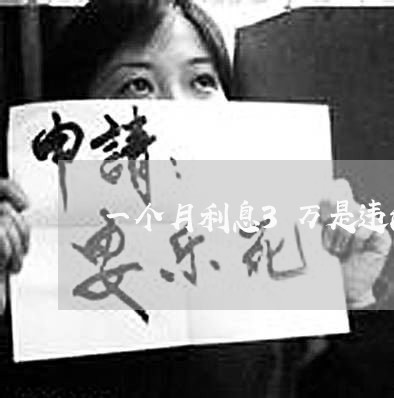 申請：
一个月利息3 万是违
安乐死